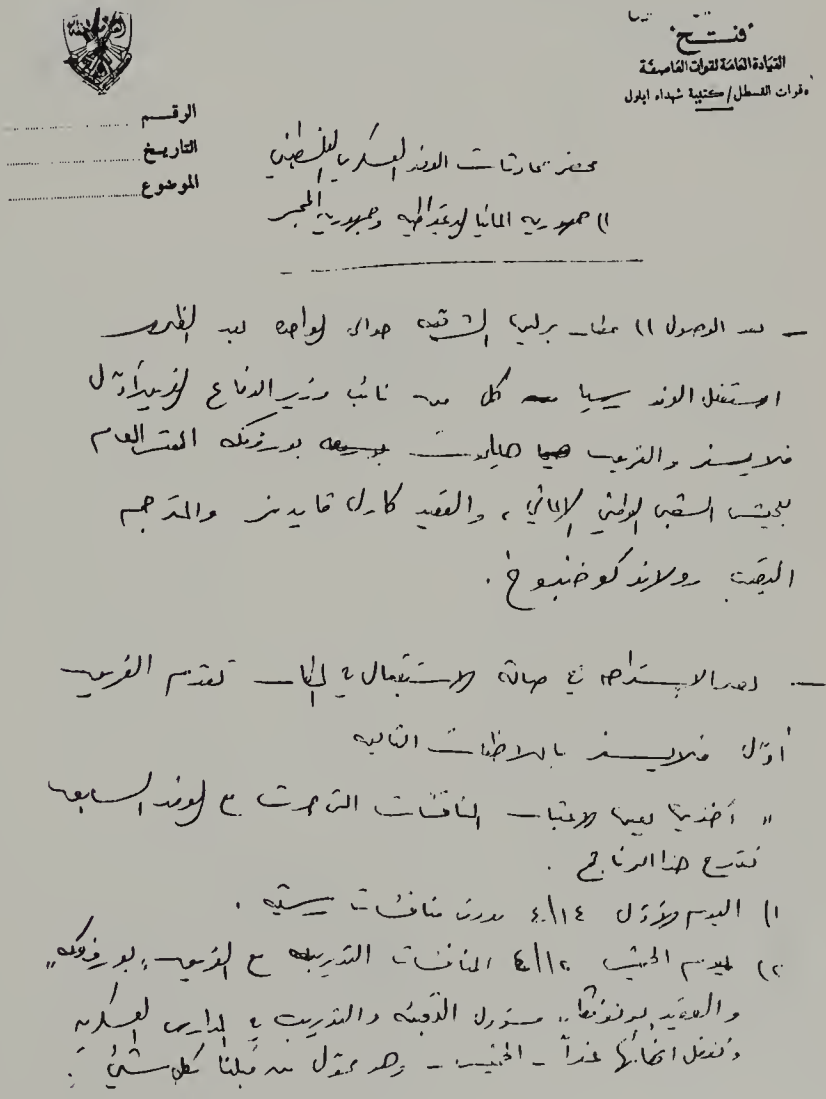 "فتح"
القيادة العامة لقوات العاصفة
قوات القسطل / كتيبة شهداء ايلول
الرقم
التاريخ
الموضوع
محضر محادثات الوفد العسكري الفلسطيني
الى جمهورية المانيا الديمقراطية وجمهورية المجر
ـ بعد الوصول الى مطار برلين الشرقية حوالي الواحدة بعد الظهر
استقبل الوفد رسميا من كل من نائب وزير الدفاع الفريق أول
فلايسنر والفريق هيلموت بورفنكه المفتش العام
للجيش الشعبي الوطني الالماني ، والعقيد كارل قايدنر والمترجم
النقيب رولاند
ـ بعد الاستراحة في صالة الاستقبال في المطار تقدم الفريق
أول فلايسنر بالملاحظات التالية
" أخذنا بعين الاعتبار المناقشات التي جرت مع الوفد السابق
نقترح هذا البرنامج .
١) اليوم الأول ٤/١٤ بدون مناقشات رسمية .
٢) يوم الخميس المناقشات التدريبية مع الفريق "بورفنكه"
والعقيد مسؤول التعبئة والتدريب في المدارس العسكرية
ونفضل انهائها غداً ـ الخميس ـ وهو مخول من قبلنا بكل شيء .